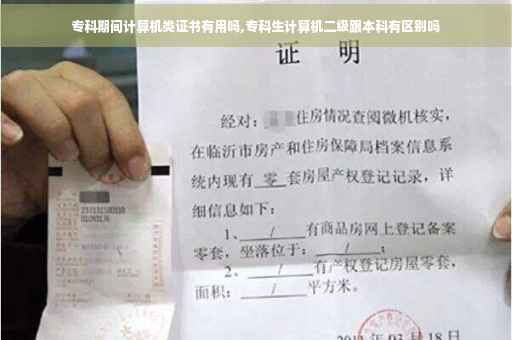 专科期间计算机类证书有用吗,专科生计算机二级跟本科有区别吗
证 明
经对: 住房情况查阅微机核实,
在临沂市房产和住房保障局档案信息系
统内现有 零 套房屋产权登记记录,详
细信息如下:
1、 / 有商品房网上登记备案
零套,坐落位于: / ;
2、 / 有产权登记房屋零套,
面积: / 平方米。
03月18日